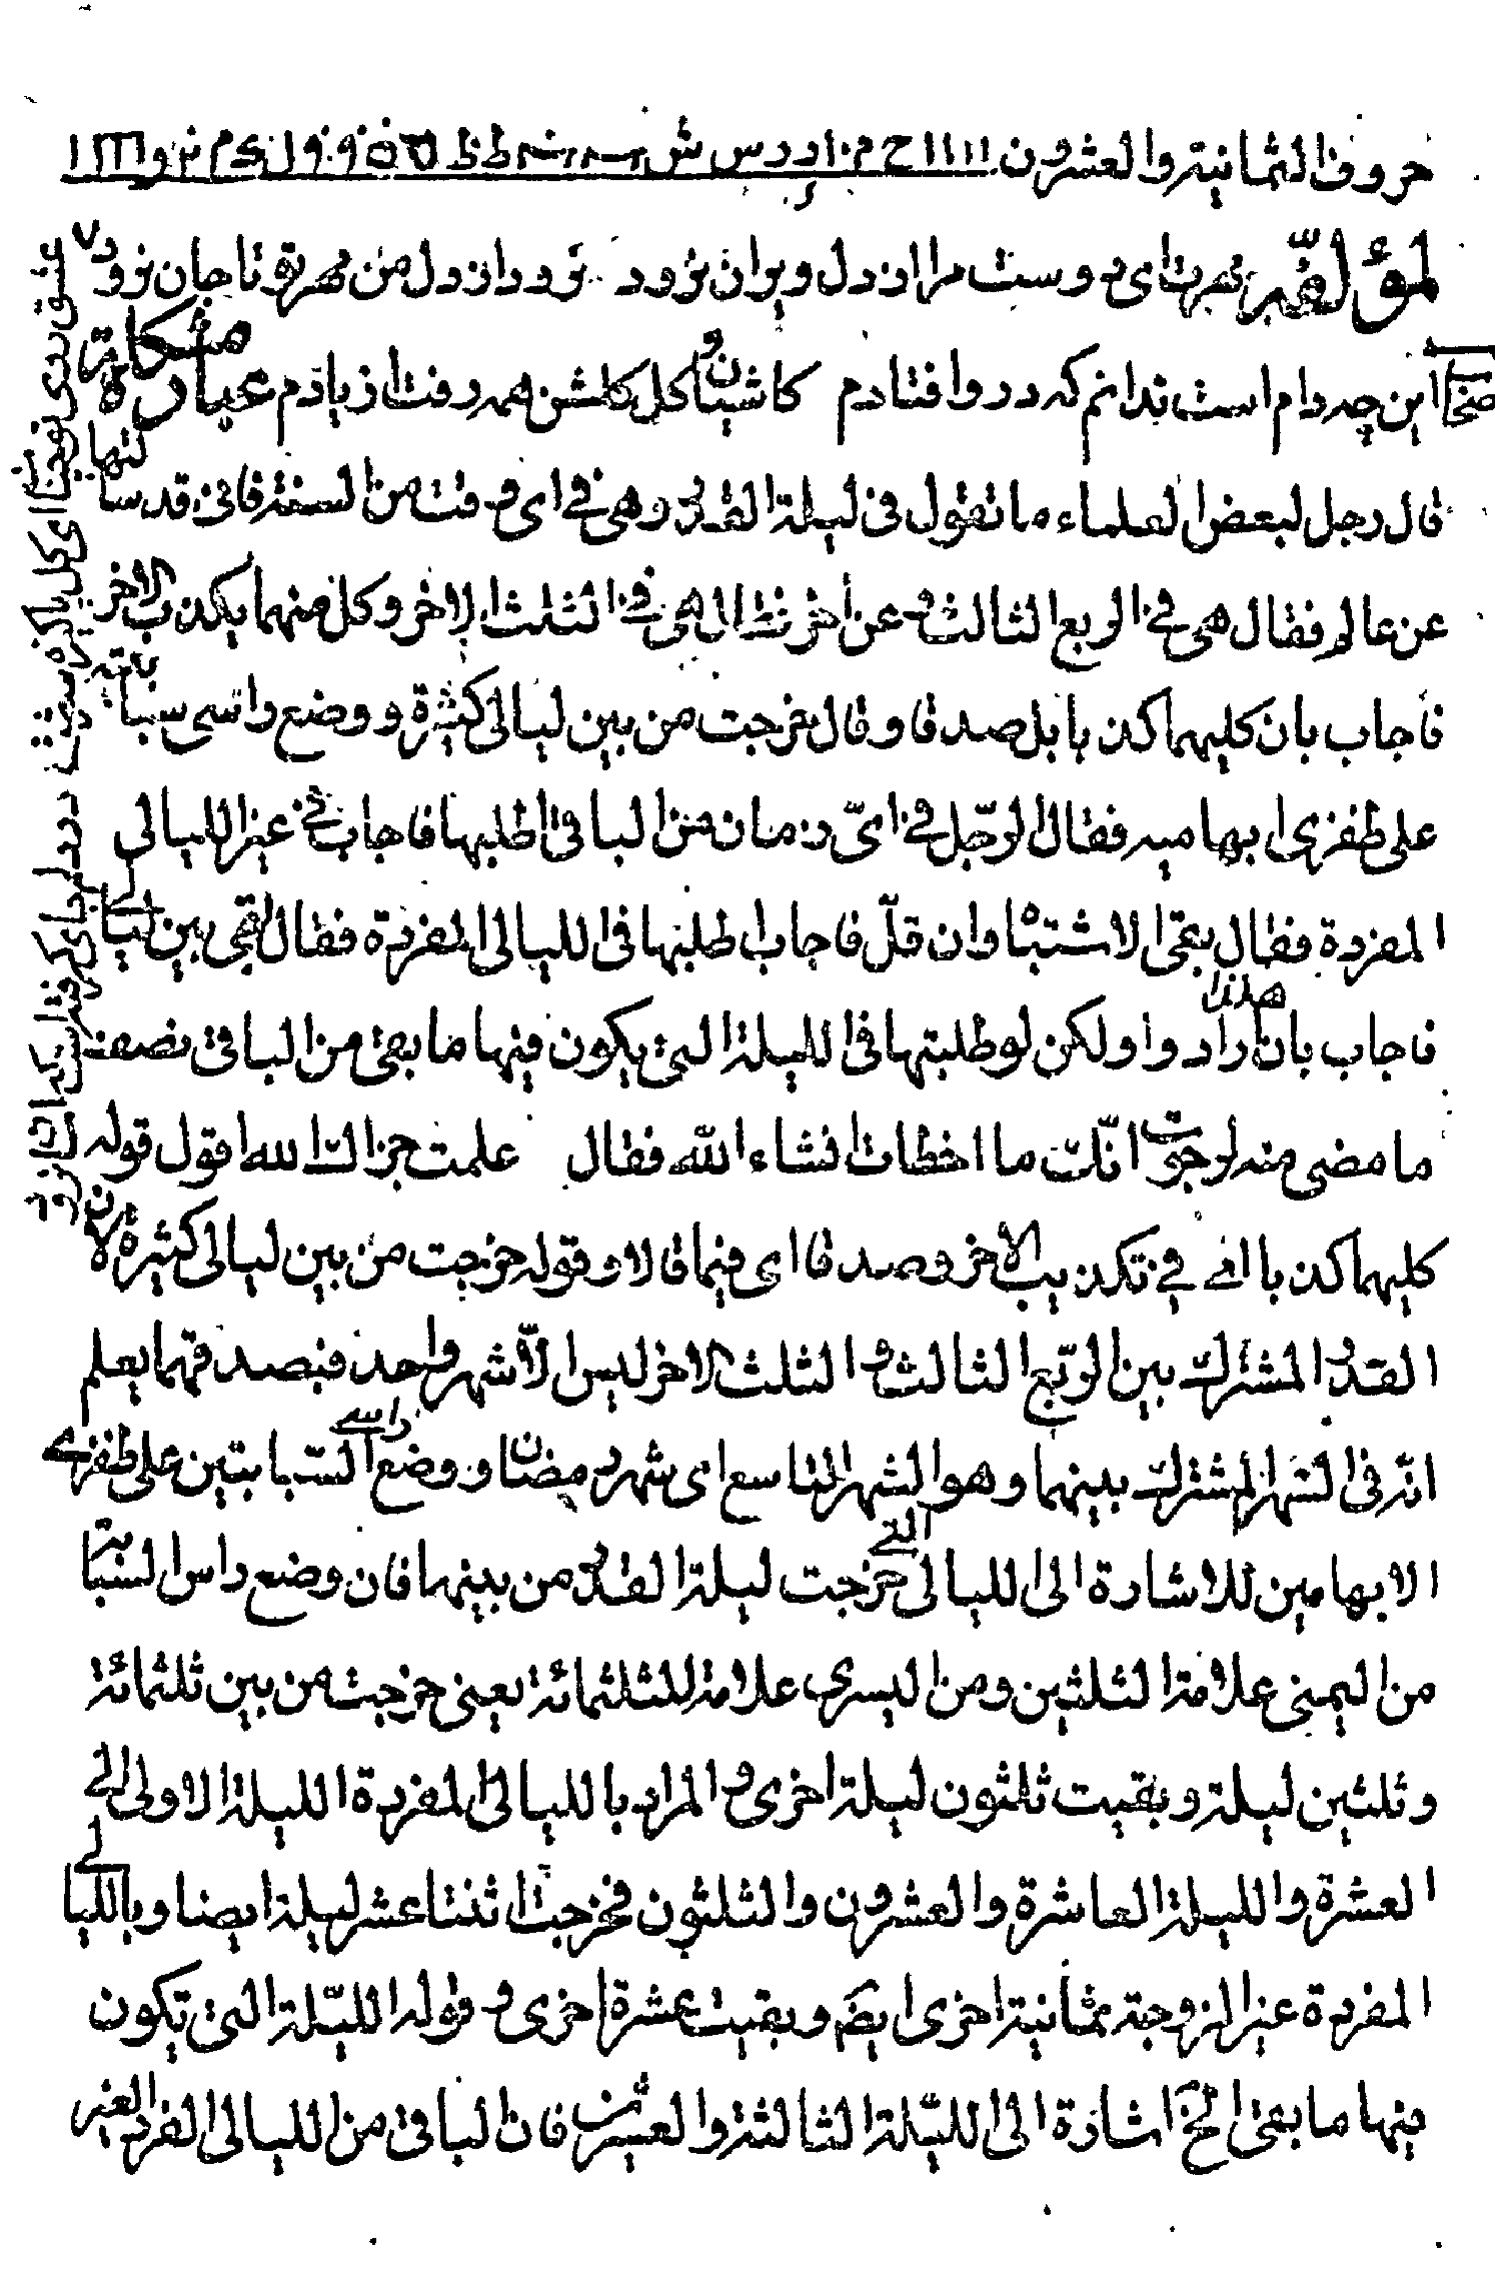 حروف الثمانية والعشرون ااااا ح م ن ا د ر س ش
لمؤلفه مهرت ای دوست مرا از دل ویران نرود نرود از دل من مهر تو تا جان نرود
این چه دام است ندانم که در و افتادم کاشیان و گل گلشن همه رفت از یادم عبارة مشكلة
قال رجل لبعض العلماء ما تقول فی لیلة القدر وهی فی ای وقت من السنة فانی قد سالتها
عن عالم فقال هی فی الربع الثالث وعن اخر فقال هی فی الثلث الاخر وکل منهما یکذب الاخر
فاجاب بان کلیهما کذبا بل صدقا وقال خرجت من بین لیالی کثیرة و وضع راسی سبابتیه
علی ظفری ابهامیه فقال الرجل فی ای زمان من الباقی اطلبها فاجاب فی غیر اللیالی
المفردة فقال بقی الاشتباه وان قل فاجاب اطلبها فی اللیالی المفردة فقال بقی بین لیالی
فاجاب بان هذا ارادوا ولکن لو طلبتها فی اللیلة التی یکون فیها ما بقی من الباقی نصف
ما مضی منه لرجوت انک ما اخطات انشاء الله فقال علمت جزاک الله اقول قوله ان
کلیهما کذبا ای فی تکذیب الاخر وصدقا ای فیما قالا وقوله خرجت من بین لیالی کثیرة لان
القدر المشترک بین الربع الثالث و الثلث الاخر لیس الا شهر واحد فبصدقهما یعلم
انه فی الشهر المشترک بینهما وهو الشهر التاسع ای شهر رمضان و وضع راسی السبابتین علی ظفری
الابهامین للاشارة الی اللیالی التی خرجت لیلة القدر من بینها فان وضع راس السبابة
من الیمنی علامة الثلثین ومن الیسری علامة للثلثمائة یعنی خرجت من بین ثلثمائة
وثلثین لیلة وبقیت ثلثون لیلة اخری و المراد باللیالی المفردة اللیلة الاولی الی
العشرة واللیلة العاشرة والعشرون والثلثون فخرجت اثنتا عشر لیلة ایضا وباللیالی
المفردة غیر الزوجة ثمانیة اخری ایضَ وبقیت عشرة اخری و قوله اللیلة التی تکون
فیها ما بقی الخ اشارة الی اللیلة الثالثة والعشرین فان الباقی من اللیالی الفرد الغیر